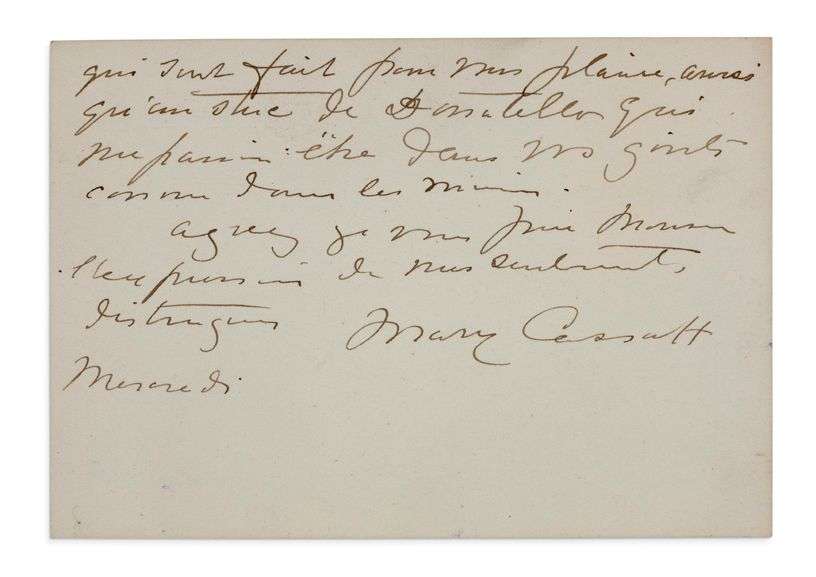 qui sont fait pour vous plaire, aussi
qu'un stuc de Donatello qui
me parait être dans vos goûts
comme dans les miens.
agreez je vous prie Monsieur
l'expression de mes sentiments
distingués
Mary Cassatt
Mercredi